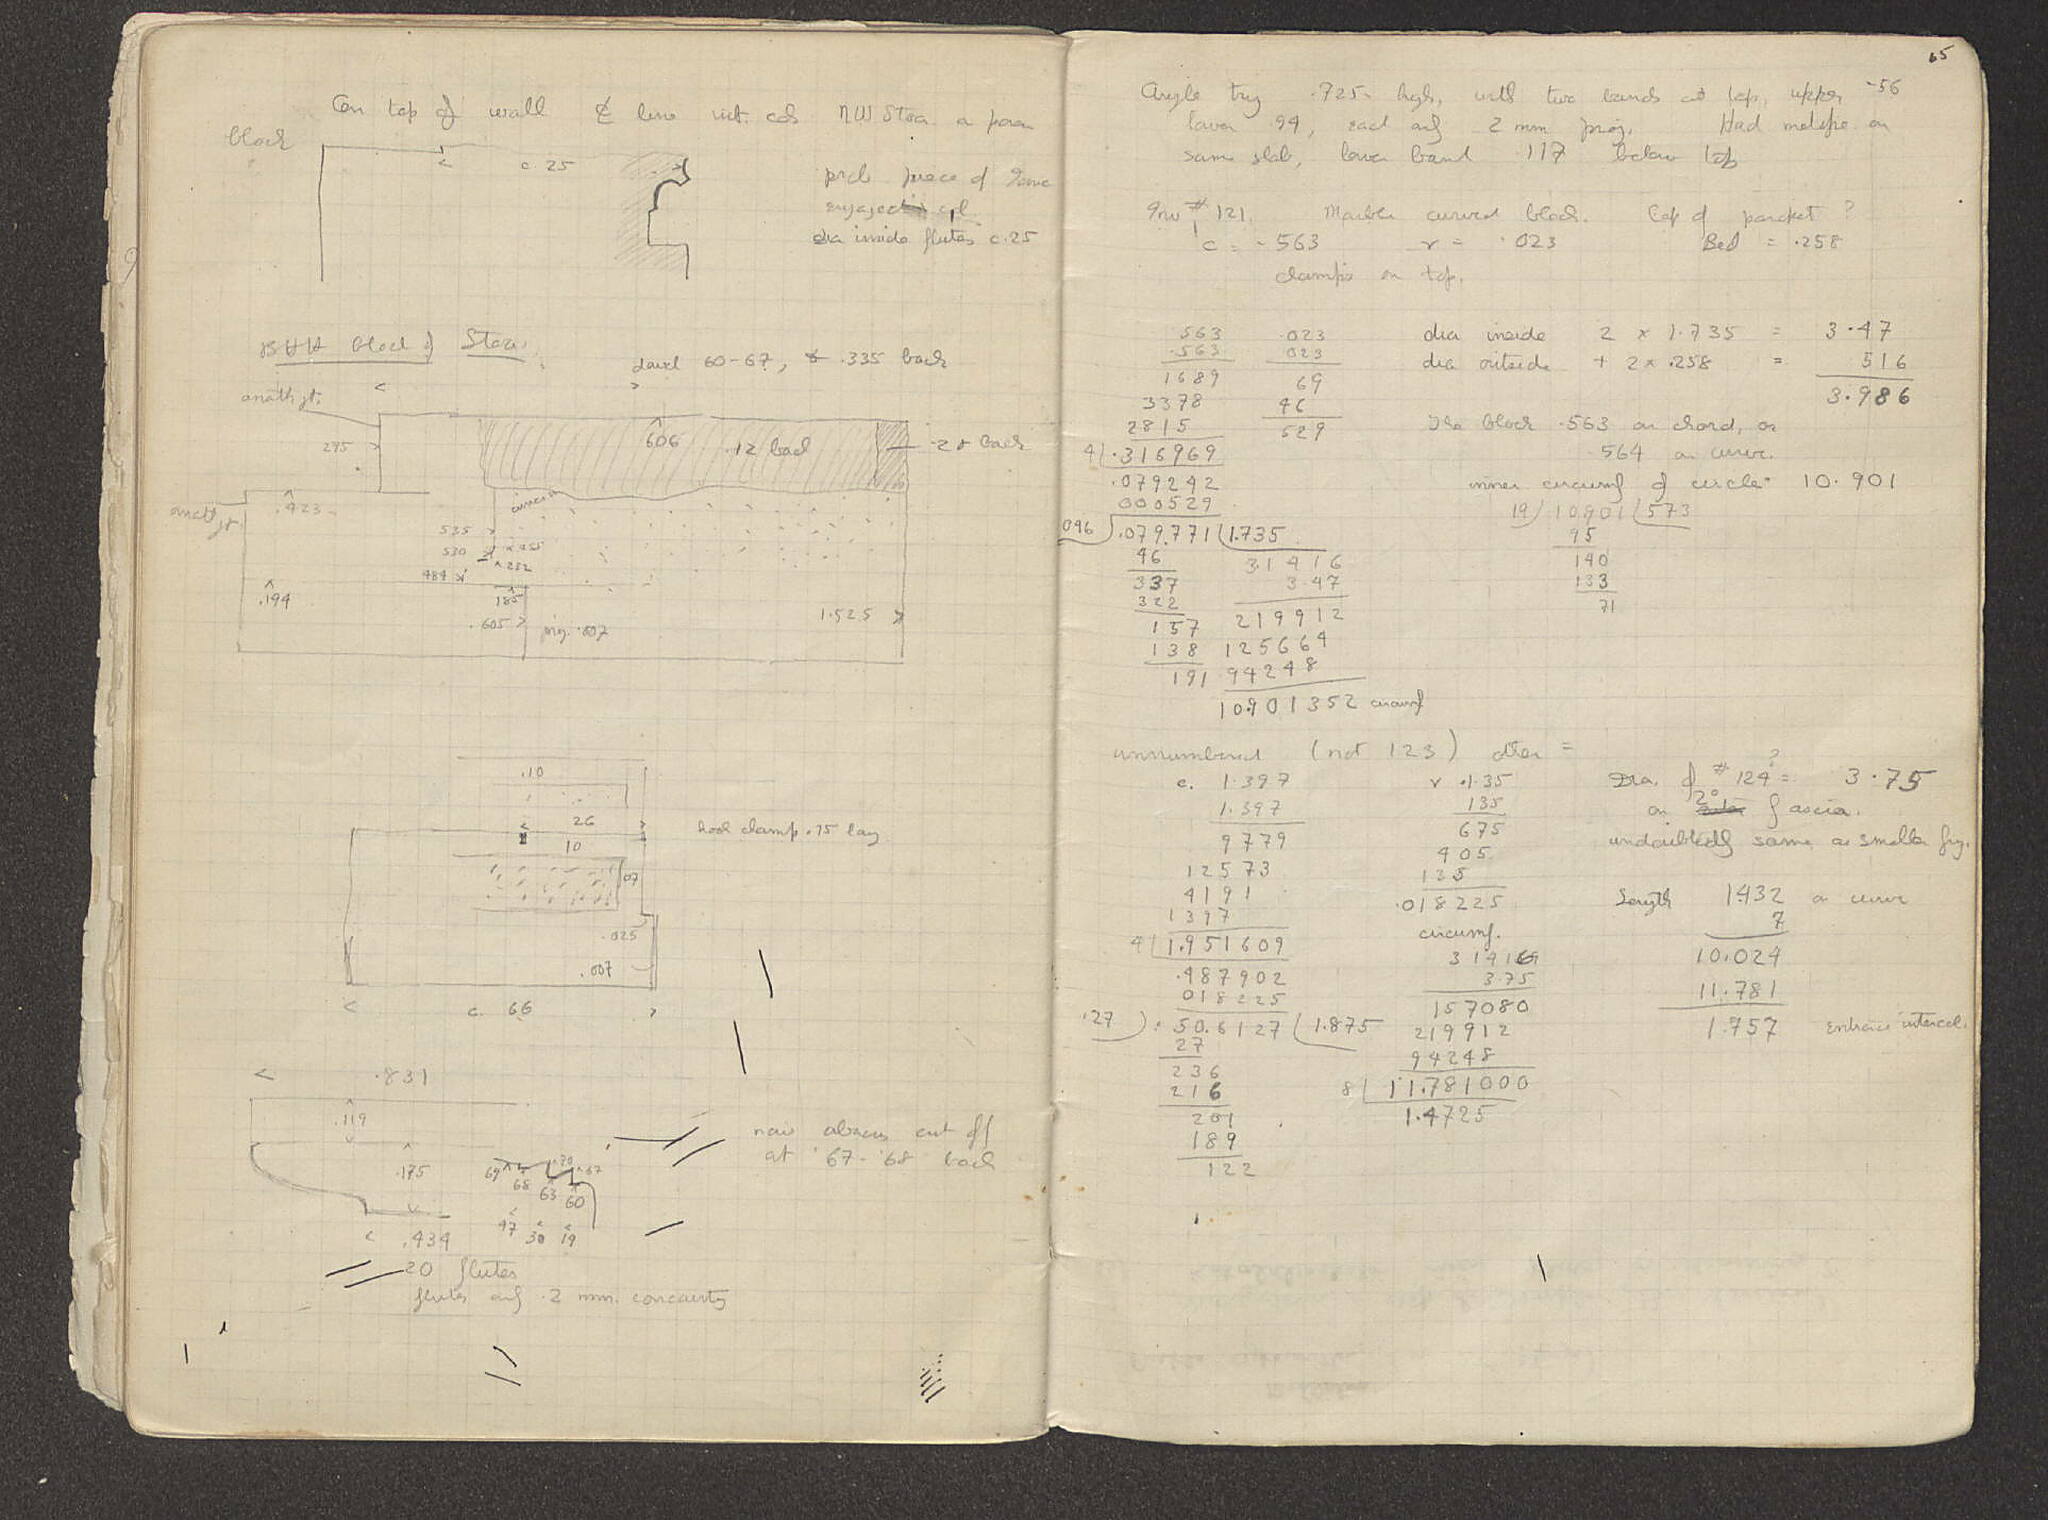 On top of wall & line int. cols NW Stoa a poros
block
c. 25
prob piece of Ionic
engaged col.
dia inside flutes c. 25
block of Stoa
60-67, .335 back
anath jt.
295
606
.12 back
anath jt.
.423
535
530
484
.194
185
.605
proj. .007
1.525
.10
26
10
hook clamp .15 long
07
.025
.007
c. 66
.831
.119
.175
69
68
63
70
67
60
47
30
19
now abacus cut off
at .67-.68 back
.434
20 flutes
flutes only .2 mm. concavity
65
Angle trig .725 high, with two bands at top, upper .56
lower .94, each only 2 mm proj. Had metope on
same slab, lower band .117 below top
Inv # 121. Marble curved block. Top of parapet ?
c = .563 r = .023 Bed = .258
clamps on top.
563 .023
.563 023
1689 69
3378 46
2815 529
4 .316969
.079242
000529
046 .079771 1.735
46
337
322
157
138
191
31416
3.47
219912
125664
94248
10.901352 circumf
dia inside 2 x 1.735 = 3.47
dia outside + 2 x .258 = 516
3.986
The block .563 on chord, or
.564 on curve.
inner circumf of circle = 10.901
19 10901 573
95
140
133
71
unnumbered (not 123) dia =
c. 1.397 r .135
1.397 135
9779 675
12573 405
4191 135
1397 .018225
4 1.951609
.487902
018225
.27 .506127 1.875
27
236
216
201
189
122
circumf.
31416
3.75
157080
219912
94248
8 11.781000
1.4725
Dia. of # 124 = ? 3.75
on 2° fascia.
undoubtedly same as smaller frg.
Length 1.432 on curve
7
10.024
11.781
1.757 entrance intercol.